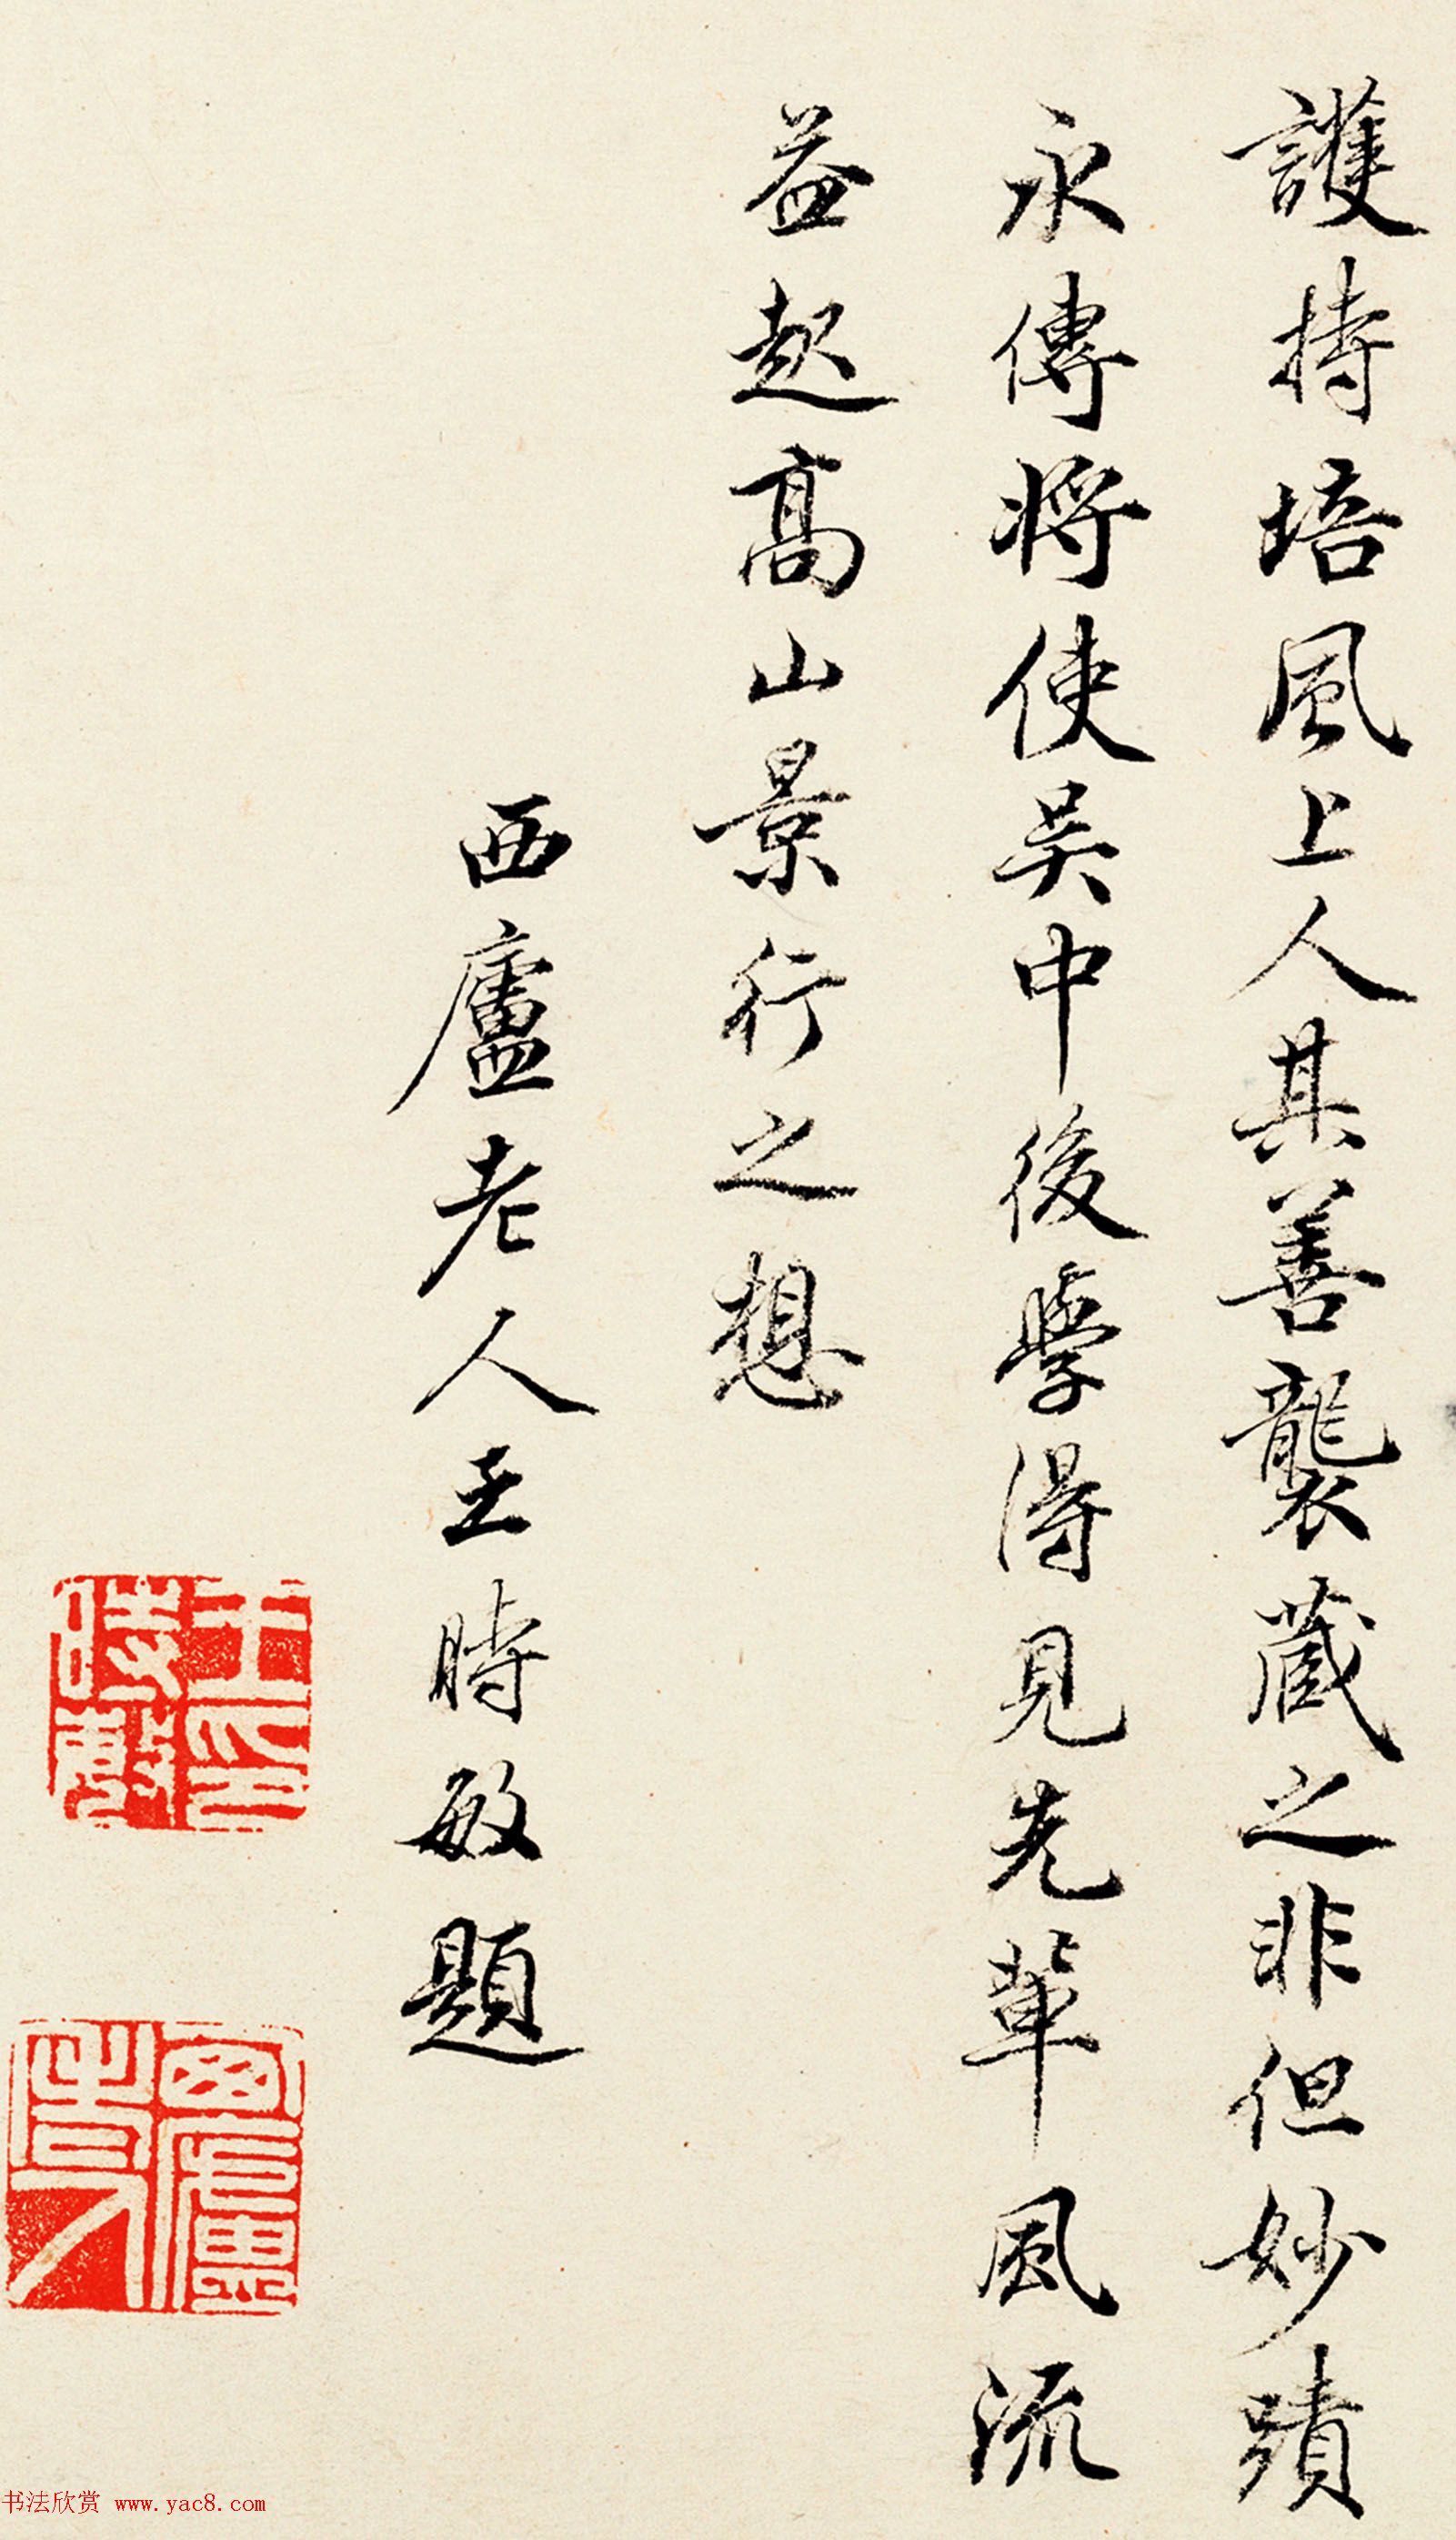 護持培風上人其善襲藏之非但妙蹟
永傳將使吳中後學得見先輩風流
益起高山景行之想
西廬老人王時敏題
王時敏印
西廬老人
书法欣赏 www.yac8.com